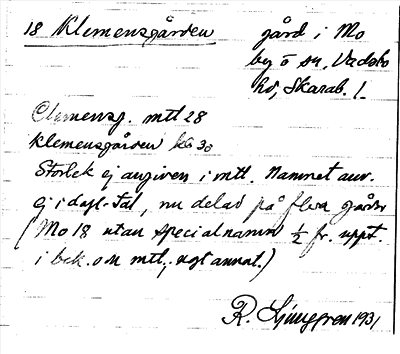 18 Klemensgården gård i Mo
by o sn, Vadsbo
hd, Skarab. l.
Clemensg. mtl 28
Klemensgården kb 30
Storlek ej angiven i mtl. Namnet anv.
ej i dagl. tal, nu delad på flera gårdar
(Mo 18 utan specialnamn ½ fr. uppt.
i bok. o mtl., ngt annat.)
R. Ljunggren 1931